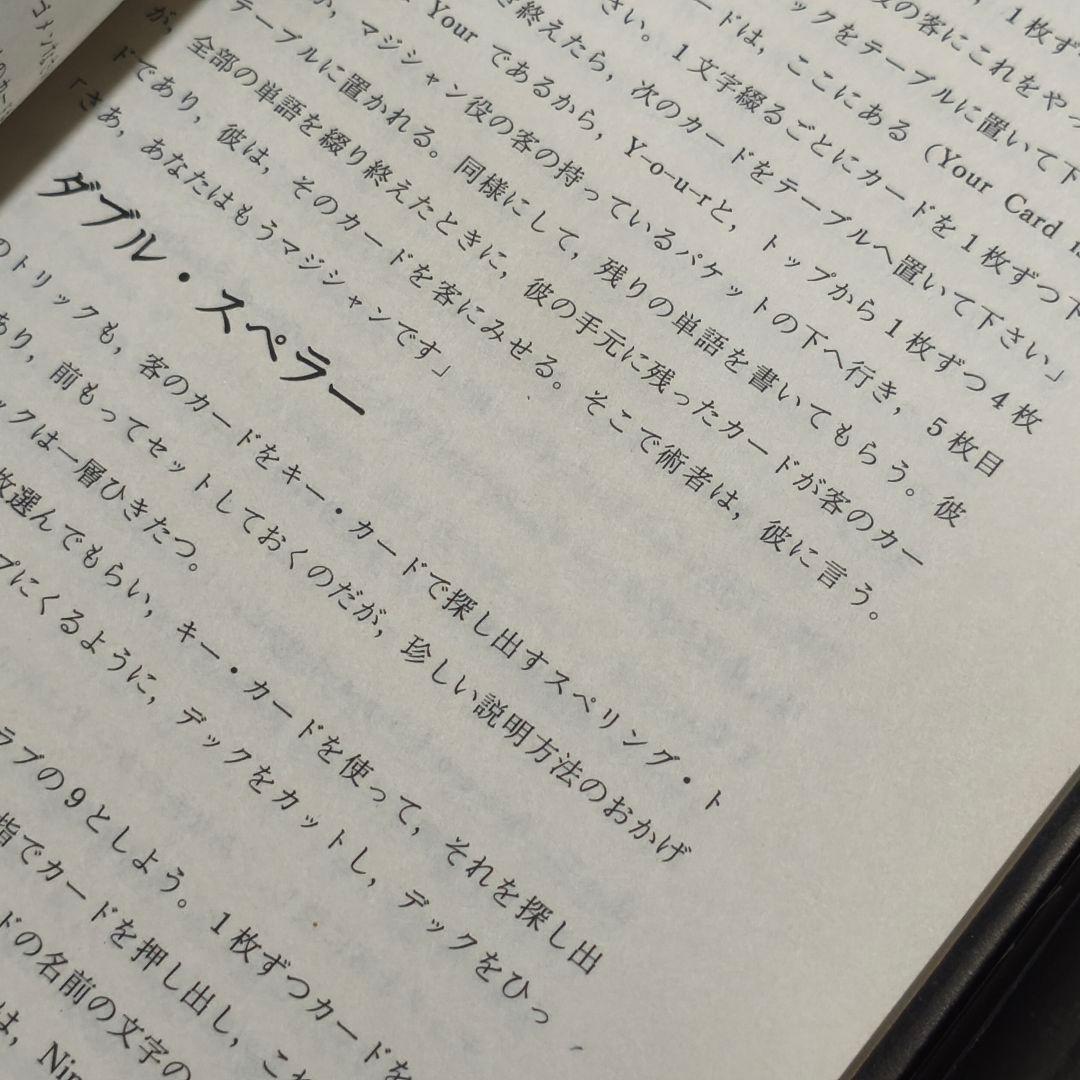 ，1枚ず
の客にこれをやっ
ックをテーブルに置いて下
ードは，ここにある（Your Card
さい。1文字綴るごとにカードを1枚ずつ下
き終えたら，次のカードをテーブルへ置いて下さい」
Your であるから，Y-o-u-rと，トップから1枚ずつ4枚
か，マジシャン役の客の持っているパケットの下へ行き，5枚目
テーブルに置かれる。同様にして，残りの単語を書いてもらう。彼
が，全部の単語を綴り終えたときに，彼の手元に残ったカードが客のカー
ドであり，彼は，そのカードを客にみせる。そこで術者は，彼に言う。
「さあ，あなたはもうマジシャンです」
ダブル・スペラー
のトリックも，客のカードをキー・カードで探し出すスペリング・ト
あり，前もってセットしておくのだが，珍しい説明方法のおかげ
ックは一層ひきたつ。
枚選んでもらい，キー・カードを使って，それを探し出
プにくるように，デックをカットし，デックをひっ
ラブの9としよう。1枚ずつカードを
指でカードを押し出し，これ
ドの名前の文字の
は，Nin